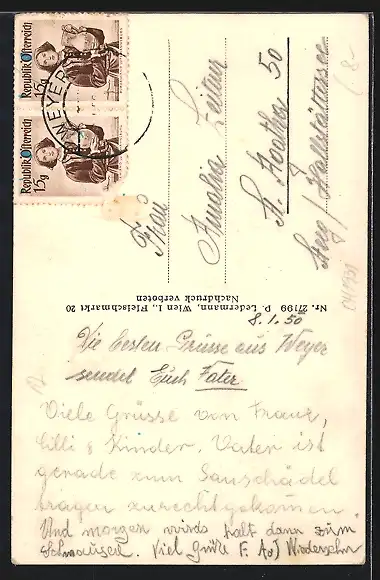 Republik Österreich
15g
Republik Österreich
15g
WEYER
Frau
Amalia Zeitner
St. Agatha 50
Steeg / Hallstättersee
Nr. 27199 P. Ledermann, Wien I., Fleischmarkt 20
Nachdruck verboten
8.1.50
Die besten Grüsse aus Weyer
sendet Euch Vater
Viele Grüsse von Franz,
Cilli & Kinder. Vater ist
gerade zum Sauschädel
tragen zurechtgekommen
Und morgen wirds halt dann zum
Schmausen. Viel Grüße F. Auf Wiedersehn